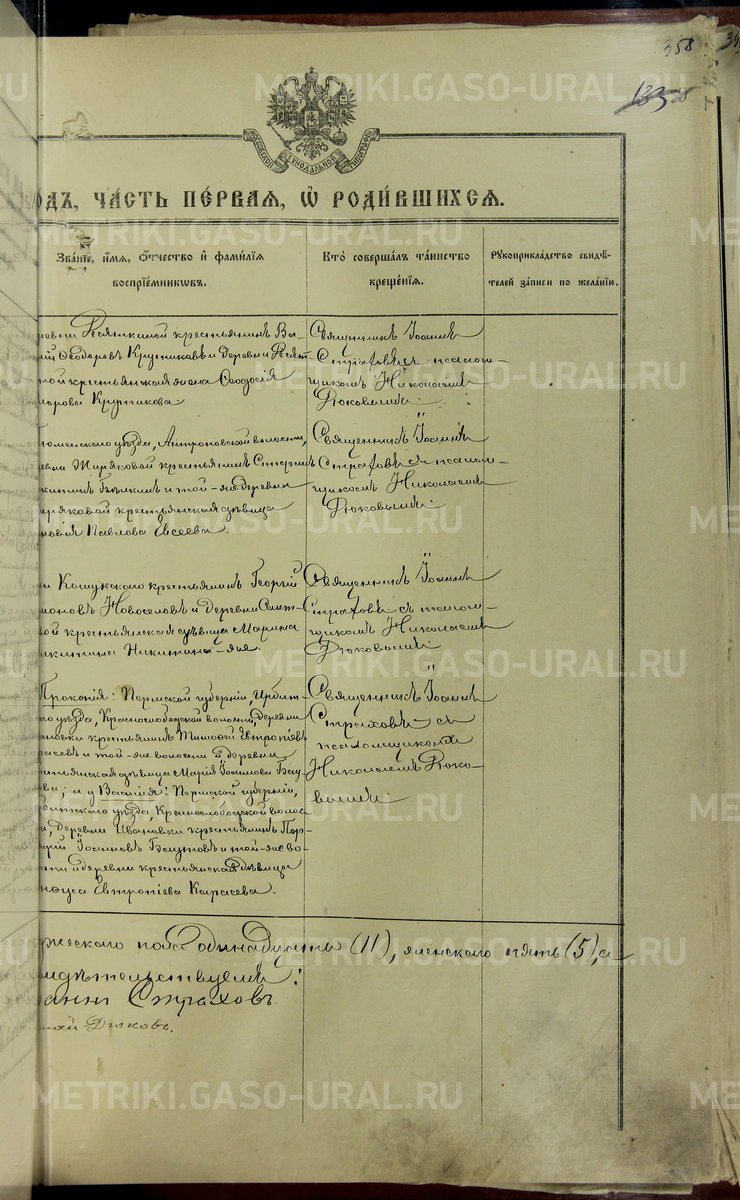 358
METRIKI.GASO-URAL.RU
ОДЪ, ЧАСТЬ ПЕ́РВАЯ, Ѡ РОДИ́ВШИХСЯ.
Зва́нїе, и́мя, ѻ́тчество и҆ фами́лїя
воспрїе́мникѡвъ.
Кто̀ соверша́лъ та́инство
креще́нїя.
Рꙋкоприкла́дство свидѣ́-
телей за́писи по жела́нїю.
крестьянинъ Ва-
Ѳеодоровъ Крутиковъ и деревни
той крестьянская жена Ѳеодосія
дорова Крутикова.
Священникъ Іоаннъ
Страховъ съ псалом-
щикомъ Николаемъ
Дюковымъ.
юменскаго уѣзда, Антроповской волости,
евни Жиряковой крестьянинъ
и той-же деревни
иряковой крестьянская дѣвица
Павлова Евсеева.
Священникъ Іоаннъ
Страховъ съ псалом-
щикомъ Николаемъ
Дюковымъ.
Кошукскаго крестьянинъ Георгій
моновъ Новоселовъ и деревни
ой крестьянская дѣвица Марина
икитина Никитина-же.
Священникъ Іоаннъ
Страховъ съ псалом-
щикомъ Николаемъ
Дюковымъ.
Прокопія: Пермской губерніи, Ирбит-
го уѣзда, Краснослободской волости, деревни
вановки крестьянинъ Тимоѳей Евтропіевъ
расевъ и той-же волости и деревни
стьянская дѣвица Марія Іоаннова
ва; а у Василія: Пермской губерніи,
битскаго уѣзда, Краснослободской волос-
и, деревни Ивановки крестьянинъ Пор-
ирій Іоанновъ и той-же во-
сти и деревни крестьянская дѣвица
Евтропіева Карасева.
Священникъ Іоаннъ
Страховъ съ
псаломщикомъ
Николаемъ Дюко-
вымъ.
жескаго пола одинадцать (11), женскаго пять (5), а
идѣтельствуемъ:
аннъ Страховъ.
лай Дюковъ.